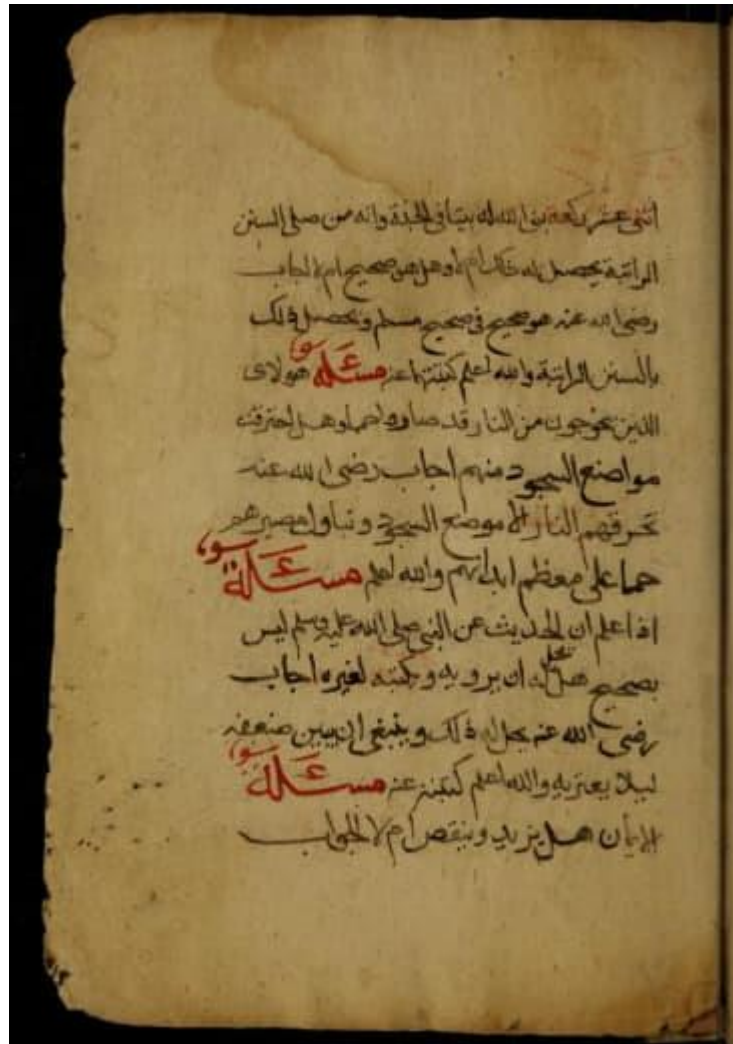 اثنى عشر ركعة بنى الله له بيتا في الجنة وانه من صلى السنن
الراتبة يحصل له ذلك ام لا وهل هو صحيح ام لا اجاب
رضى الله عنه هو صحيح في صحيح مسلم ويحصل ذلك
بالسنن الراتبة والله اعلم كتبتها عنه مسئلة هولاى
الذين يخرجون من النار قد صاروا حمما وهل احترقت
مواضع السجود منهم اجاب رضى الله عنه
تحرقهم النار الا موضع السجود و مصيرهم
حمما على معظم ابدانهم والله اعلم مسئلة
اذا علم ان الحديث عن النبي صلى الله عليه وسلم ليس
بصحيح هل يحل له ان يرويه ويكتبه لغيره اجاب
رضى الله عنه يحل له ذلك وينبغى ان يبين ضعفه
ليلا يغتر به والله اعلم كتبته عنه مسئلة
الايمان هل يزيد وينقص ام لا الجواب